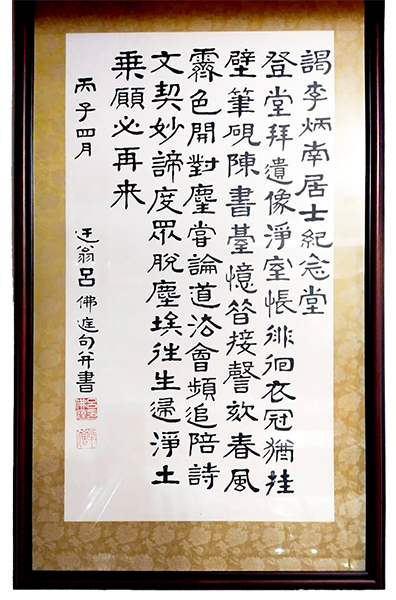 謁李炳南居士紀念堂
登堂拜遺像淨室悵徘徊衣冠猶挂
壁筆硯陳書臺憶昔接謦欬春風
霽色開對麈嘗論道法會頻追陪詩
文契妙諦度眾脫塵埃往生歸淨土
乘願必再来
丙子四月 迂翁呂佛庭句并書